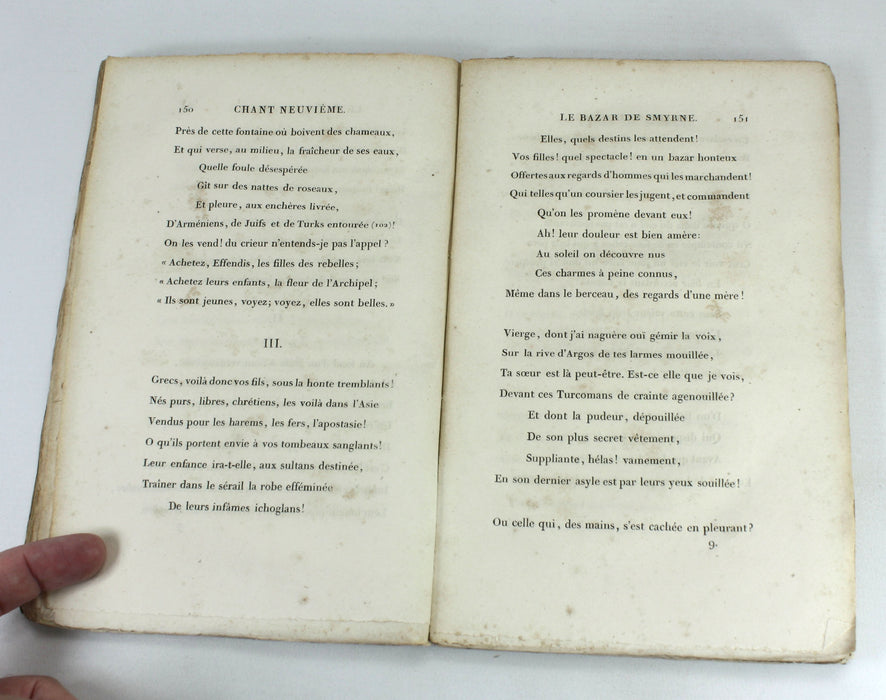 150 CHANT NEUVIÈME.
Près de cette fontaine où boivent des chameaux,
Et qui verse, au milieu, la fraîcheur de ses eaux,
Quelle foule désespérée
Gît sur des nattes de roseaux,
Et pleure, aux enchères livrée,
D'Arméniens, de Juifs et de Turks entourée (102)!
On les vend! du crieur n'entends-je pas l'appel?
« Achetez, Effendis, les filles des rebelles;
« Achetez leurs enfants, la fleur de l'Archipel;
« Ils sont jeunes, voyez; voyez, elles sont belles. »
III.
Grecs, voilà donc vos fils, sous la honte tremblants!
Nés purs, libres, chrétiens, les voilà dans l'Asie
Vendus pour les harems, les fers, l'apostasie!
O qu'ils portent envie à vos tombeaux sanglants!
Leur enfance ira-t-elle, aux sultans destinée,
Traîner dans le sérail la robe efféminée
De leurs infâmes ichoglans!
LE BAZAR DE SMYRNE. 151
Elles, quels destins les attendent!
Vos filles! quel spectacle! en un bazar honteux
Offertes aux regards d'hommes qui les marchandent!
Qui telles qu'un coursier les jugent, et commandent
Qu'on les promène devant eux!
Ah! leur douleur est bien amère:
Au soleil on découvre nus
Ces charmes à peine connus,
Même dans le berceau, des regards d'une mère!
Vierge, dont j'ai naguère ouï gémir la voix,
Sur la rive d'Argos de tes larmes mouillée,
Ta sœur est là peut-être. Est-ce elle que je vois,
Devant ces Turcomans de crainte agenouillée?
Et dont la pudeur, dépouillée
De son plus secret vêtement,
Suppliante, hélas! vainement,
En son dernier asyle est par leurs yeux souillée!
Ou celle qui, des mains, s'est cachée en pleurant?
9.